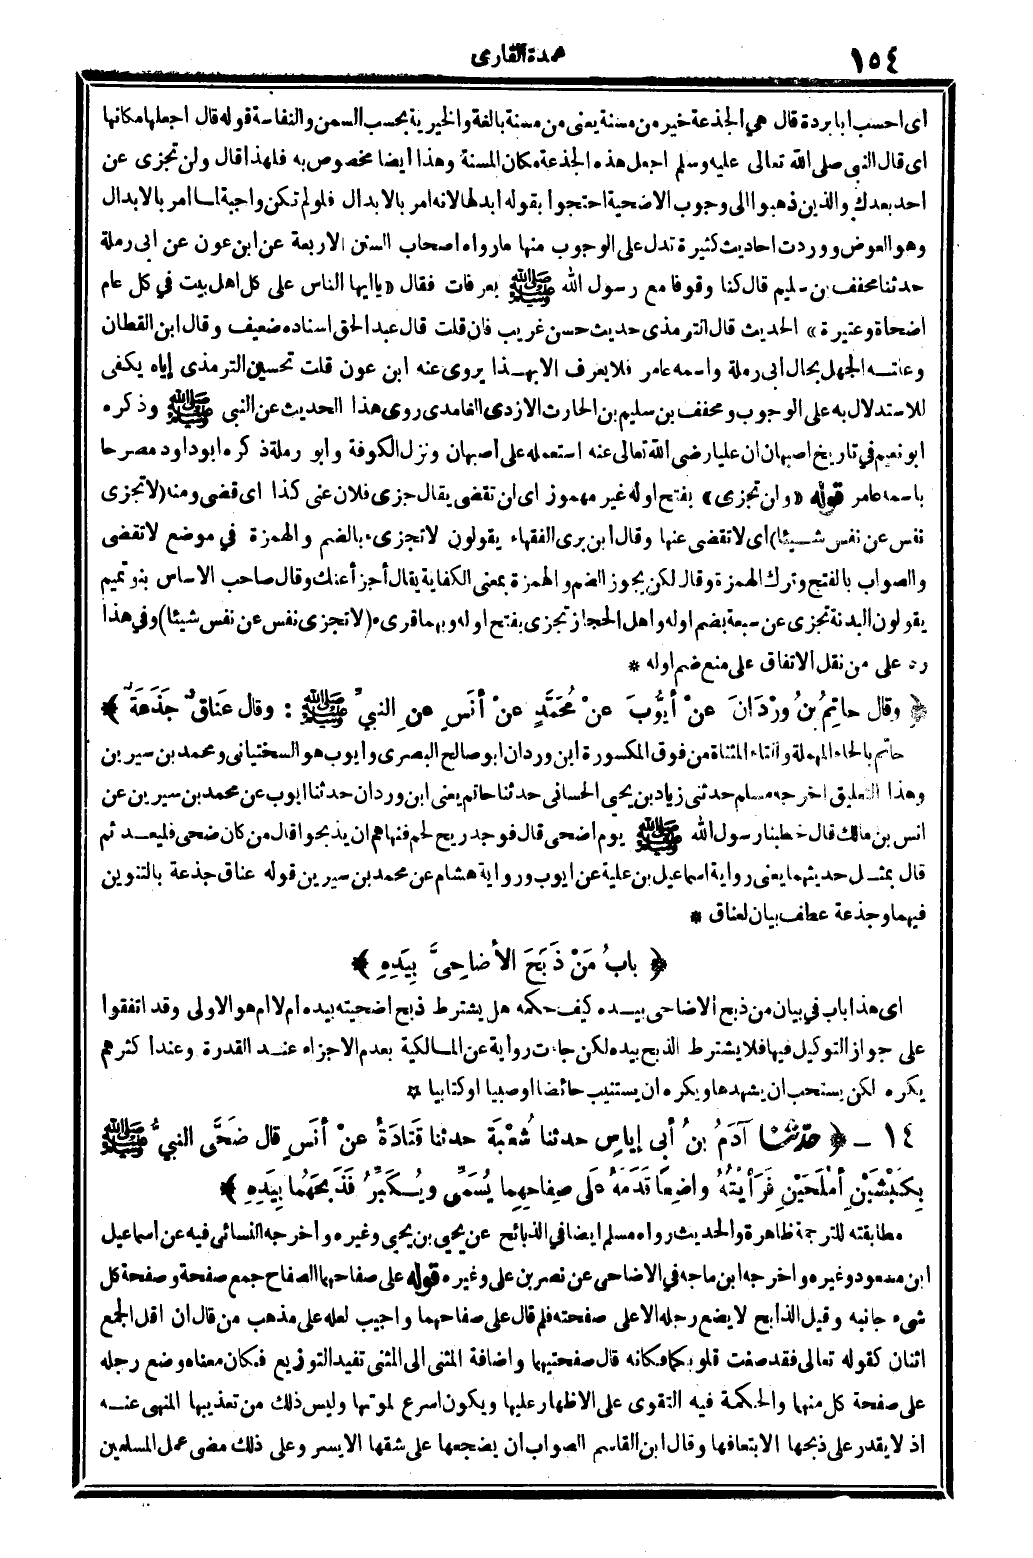 ١٥٤ عمدة القارى
اى احسب ابا بردة قال هي الجذعة خير من مسنة يعنى من مسنة بالغة والخيرية بحسب السمن والنفاسة قوله قال اجعلها مكانها
اى قال النبى صلى الله تعالى عليه وسلم اجعل هذه الجذعة مكان المسنة وهذا ايضا مخصوص به فلهذا قال ولن تجزى عن
احد بعدك والذين ذهبوا الى وجوب الاضحية احتجوا بقوله ابدلها لانه امر بالابدال فلو لم تكن واجبة لما امر بالابدال
وهو العوض ووردت احاديث كثيرة تدل على الوجوب منها ما رواه اصحاب السنن الاربعة عن ابن عون عن ابى رملة
حدثنا مخنف بن سليم قال كنا وقوفا مع رسول الله ﷺ بعرفات فقال «ياايها الناس على كل اهل بيت في كل عام
اضحاة وعتيرة» الحديث قال الترمذى حديث حسن غريب فان قلت قال عبد الحق اسناده ضعيف وقال ابن القطان
وعلتــه الجهل بحال ابى رملة واسمه عامر فلا يعرف الا بهــذا يروى عنه ابن عون قلت تحسين الترمذى إياه يكفى
للاستدلال به على الوجوب ومخنف بن سليم بن الحارث الازدى الغامدى روى هذا الحديث عن النبى ﷺ وذكره
ابو نعيم في تاريخ اصبهان ان عليا رضى الله تعالى عنه استعمله على أصبهان ونزل الكوفة وأبو رملة ذكره ابو داود مصرحا
باسمه عامر قوله «ولن تجزى» بفتح اوله غير مهموز اى لن تقضى يقال جزى فلان عنى كذا اى قضى ومنه (لا تجزى
نفس عن نفس شــيئا) اى لا تقضى عنها وقال ابن برى الفقهاء يقولون لا تجزىء بالضم والهمزة في موضع لا تقضى
والصواب بالفتح وترك الهمزة وقال لكن يجوز الضم والهمزة بمعنى الكفاية يقال أجزأ عنك وقال صاحب الاساس بنو تميم
يقولون البدنة تجزى عن سبعة بضم اوله واهل الحجاز تجزى بفتح اوله وبهما قرىء (لا تجزى نفس عن نفس شيئا) وفى هذا
رد على من نقل الاتفاق على منع ضم اوله *
﴿ وقال حاتِمُ بنُ وَرْدَانَ عنْ أيُّوبَ عنْ مُحَمَّدٍ عنْ أنَسٍ عنِ النبيِّ ﷺ : وقال عَناقٌ جَذَعَةٌ ﴾
حاتم بالحاء المهملة والتاء المثناة من فوق المكسورة ابن وردان ابو صالح البصرى وايوب هو السختيانى ومحمد بن سيرين
وهذا التعليق اخرجه مسلم حدثنى زياد بن يحيى الحسانى حدثنا حاتم يعنى ابن وردان حدثنا ايوب عن محمد بن سيرين عن
انس بن مالك قال خطبنا رسول الله ﷺ يوم اضحى قال فوجد ريح لحم فنهاهم ان يذبحوا قال من كان ضحى فليعــد ثم
قال بمثــل حديثهما يعنى رواية اسماعيل بن علية عن ايوب ورواية هشام عن محمد بن سيرين قوله عناق جذعة بالتنوين
فيهما وجذعة عطف بيان لعناق *
﴿ بابُ مَنْ ذَبَحَ الأضاحِىَّ بِيَدِهِ ﴾
اى هذا باب في بيان من ذبح الاضاحى بيــده كيف حكمه هل يشترط ذبح اضحيته بيده ام لا ام هو الاولى وقد اتفقوا
على جواز التوكيل فيها فلا يشترط الذبح بيده لكن جاءت رواية عن المــالكية بعدم الاجزاء عنــد القدرة وعند اكثرهم
يكره لكن يستحب ان يشهدها ويكره ان يستنيب حائضا او صبيا او كتابيا *
١٤ - ﴿ حدَّثنا آدَمُ بنُ أبى إياسٍ حدثنا شُعْبَةُ حدثنا قَتادَةُ عنْ أنَسٍ قال ضَحَّى النبيُّ ﷺ
بِكَبْشَيْنِ أمْلَحَيْنِ فَرَأيْتُهُ واضِعًا قَدَمَهُ عَلَى صِفاحِهِما يُسَمِّى ويُــكَبِّرُ فَذَبَحَهُما بِيَدِهِ ﴾
مطابقته للترجمة ظاهرة والحديث رواه مسلم ايضا في الذبائح عن يحيى بن يحيى وغيره واخرجه النسائى فيه عن اسماعيل
ابن مسعود وغيره واخرجه ابن ماجه في الاضاحى عن نصر بن على وغيره قوله على صفاحهما الصفاح جمع صفحة وصفحة كل
شىء جانبه وقيل الذابح لا يضع رجله الا على صفحته فلم قال على صفاحهما واجيب لعله على مذهب من قال ان اقل الجمع
اثنان كقوله تعالى فقد صغت قلوبكما فكأنه قال صفحتيهما واضافة المثنى الى المثنى تفيد التوزيع فكان معناه وضع رجله
على صفحة كل منهما والحكمة فيه التقوى على الاظهار عليها ويكون اسرع لموتها وليس ذلك من تعذيبها المنهى عنــه
اذ لا يقدر على ذبحها الا بتعافها وقال ابن القاسم الصواب أن يضجعها على شقها الايسر وعلى ذلك مضى عمل المسلمين